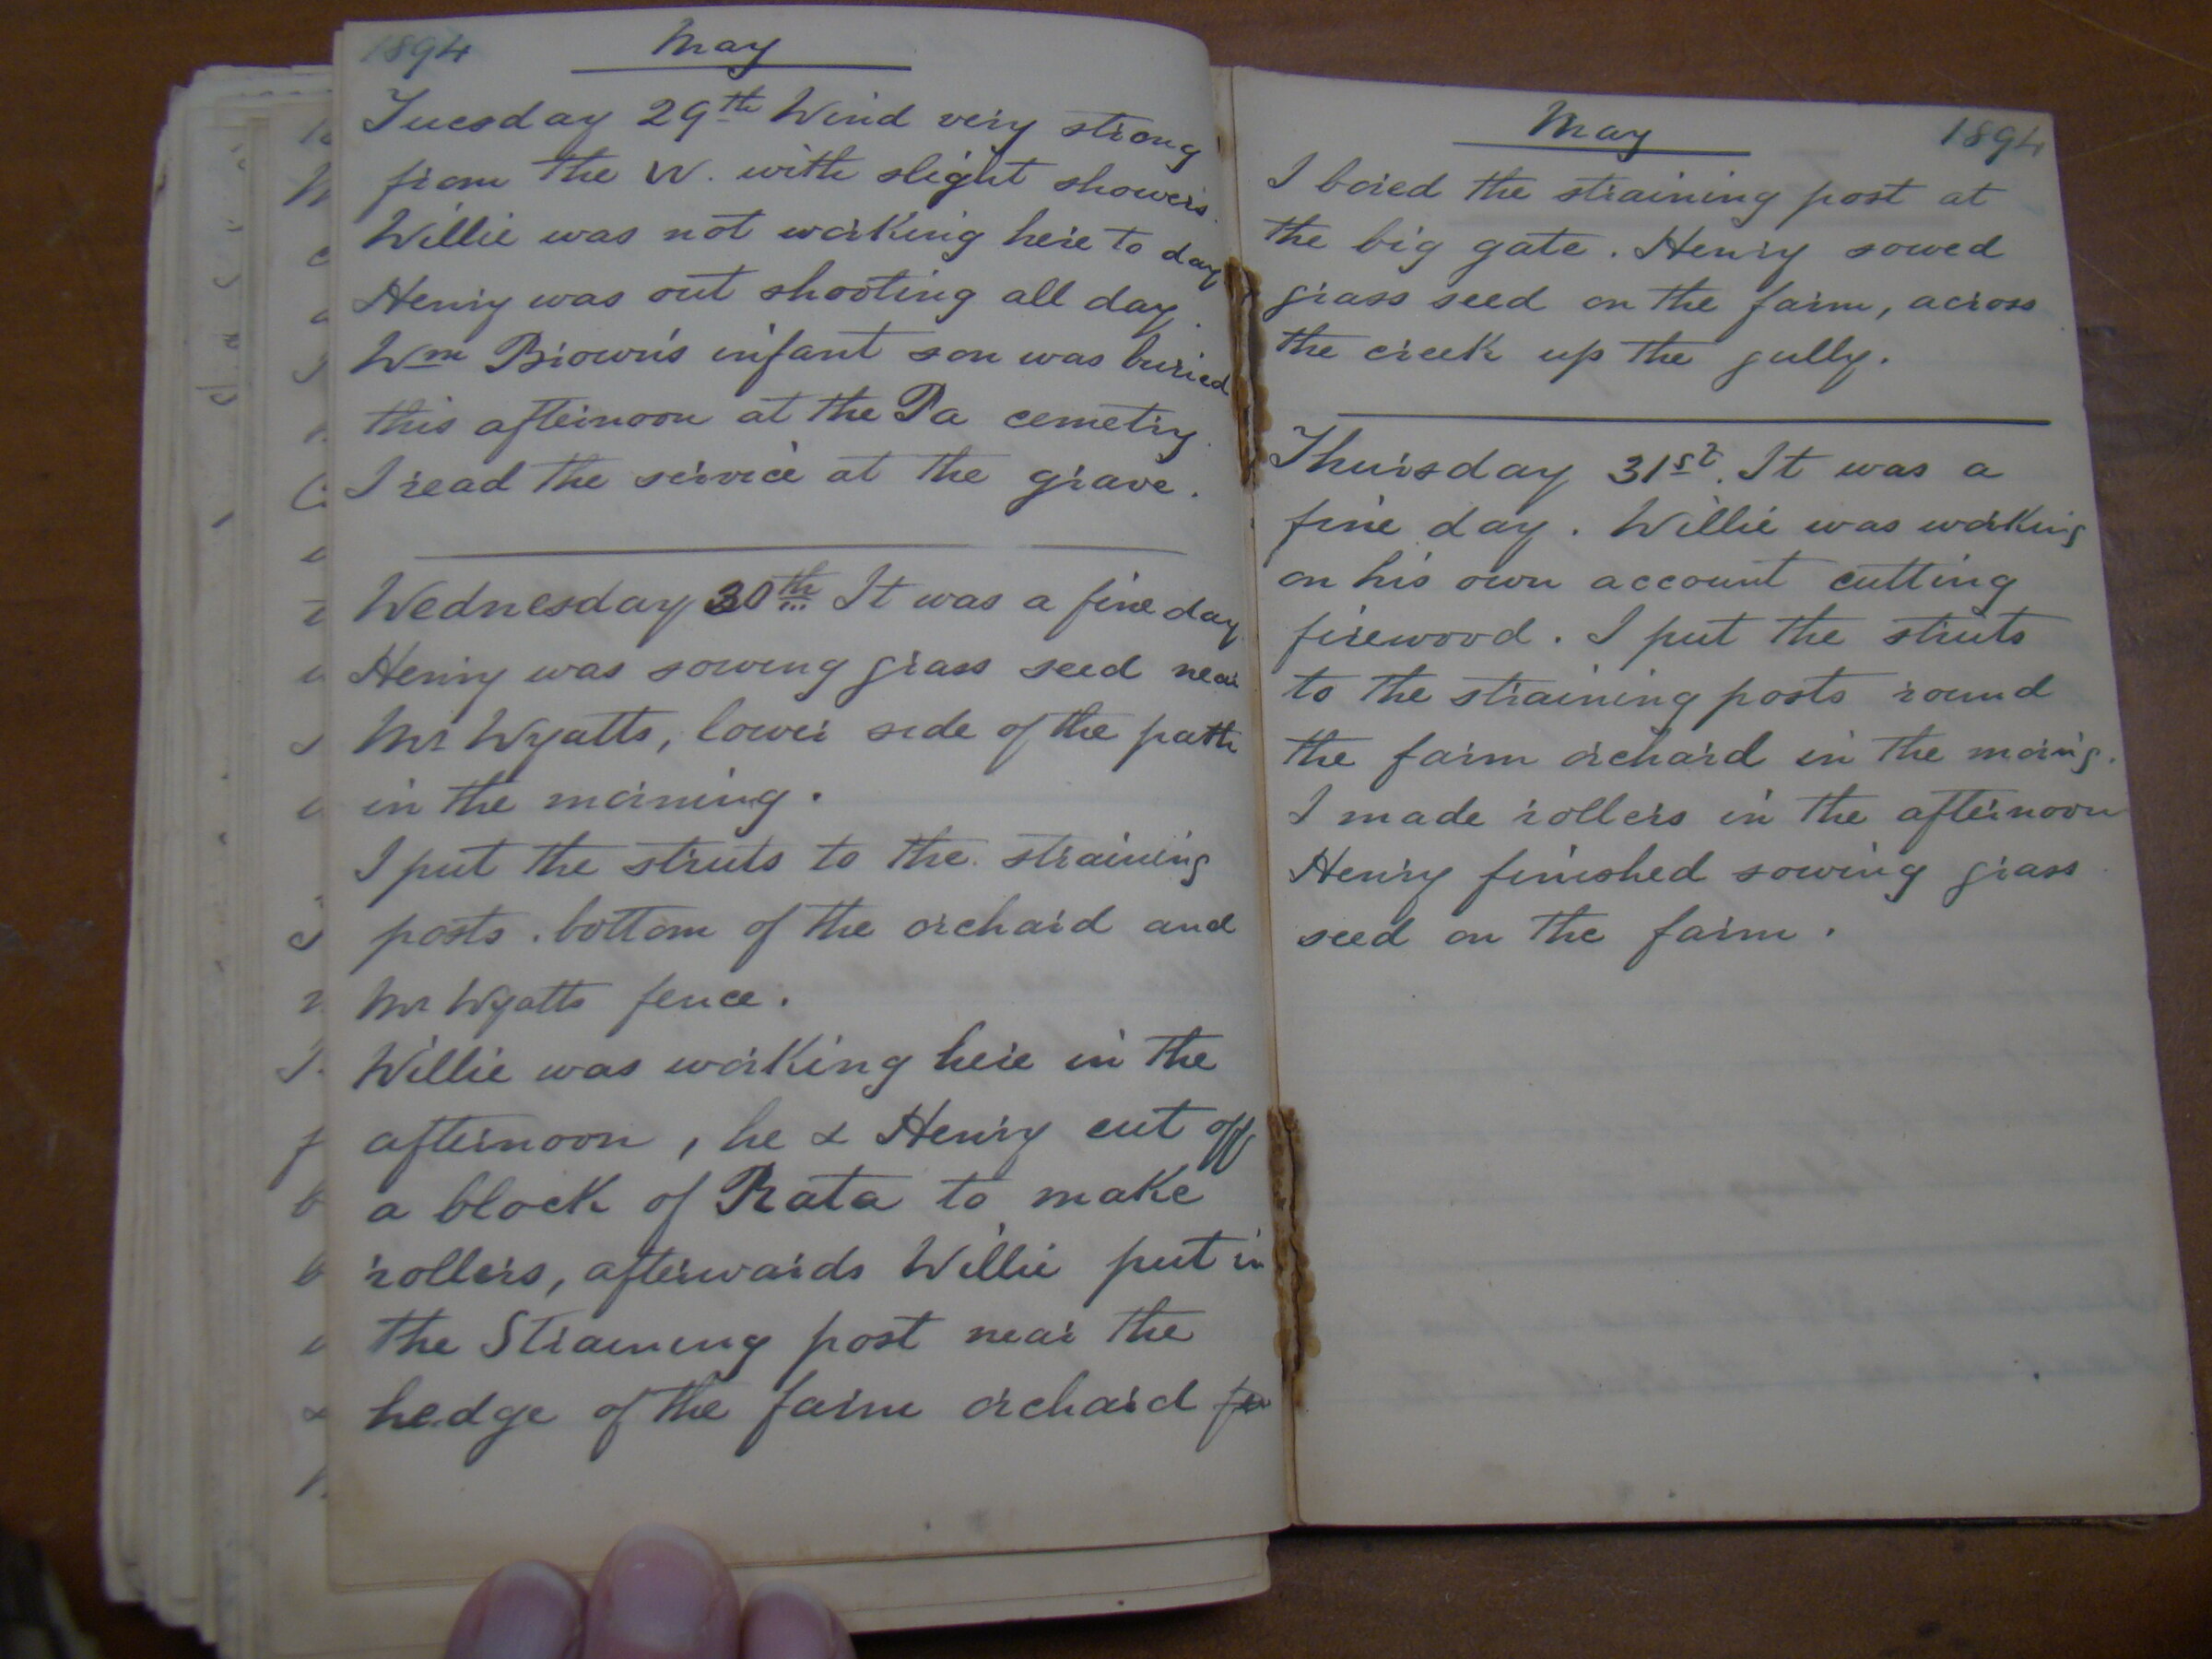 1894 May
Tuesday 29th Wind very strong
from the W. with slight showers.
Willie was not working here to day
Henry was out shooting all day.
Wm Brown's infant son was buried
this afternoon at the Pa cemetry.
I read the service at the grave.
Wednesday 30th It was a fine day.
Henry was sowing grass seed near
Mr Wyatts, lower side of the path
in the morning.
I put the struts to the straining
posts. bottom of the orchard and
Mr Wyatts fence.
Willie was working here in the
afternoon, he & Henry cut off
a block of Rata to make
rollers, afterwards Willie put in
the Straining post near the
hedge of the farm orchard
May 1894
I bored the straining post at
the big gate. Henry sowed
grass seed on the farm, across
the creek up the gully.
Thursday 31st. It was a
fine day. Willie was working
on his own account cutting
firewood. I put the struts
to the straining posts round
the farm orchard in the morng.
I made rollers in the afternoon
Henry finished sowing grass
seed on the farm.